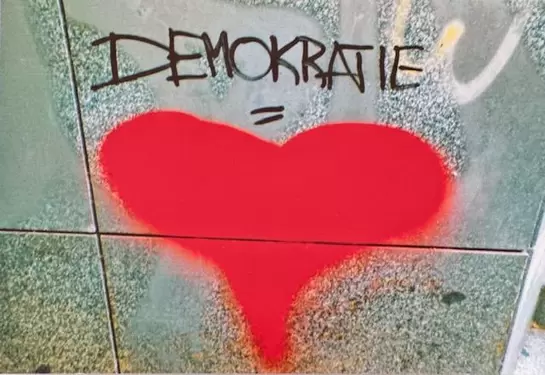 DEMOKRATIE
=